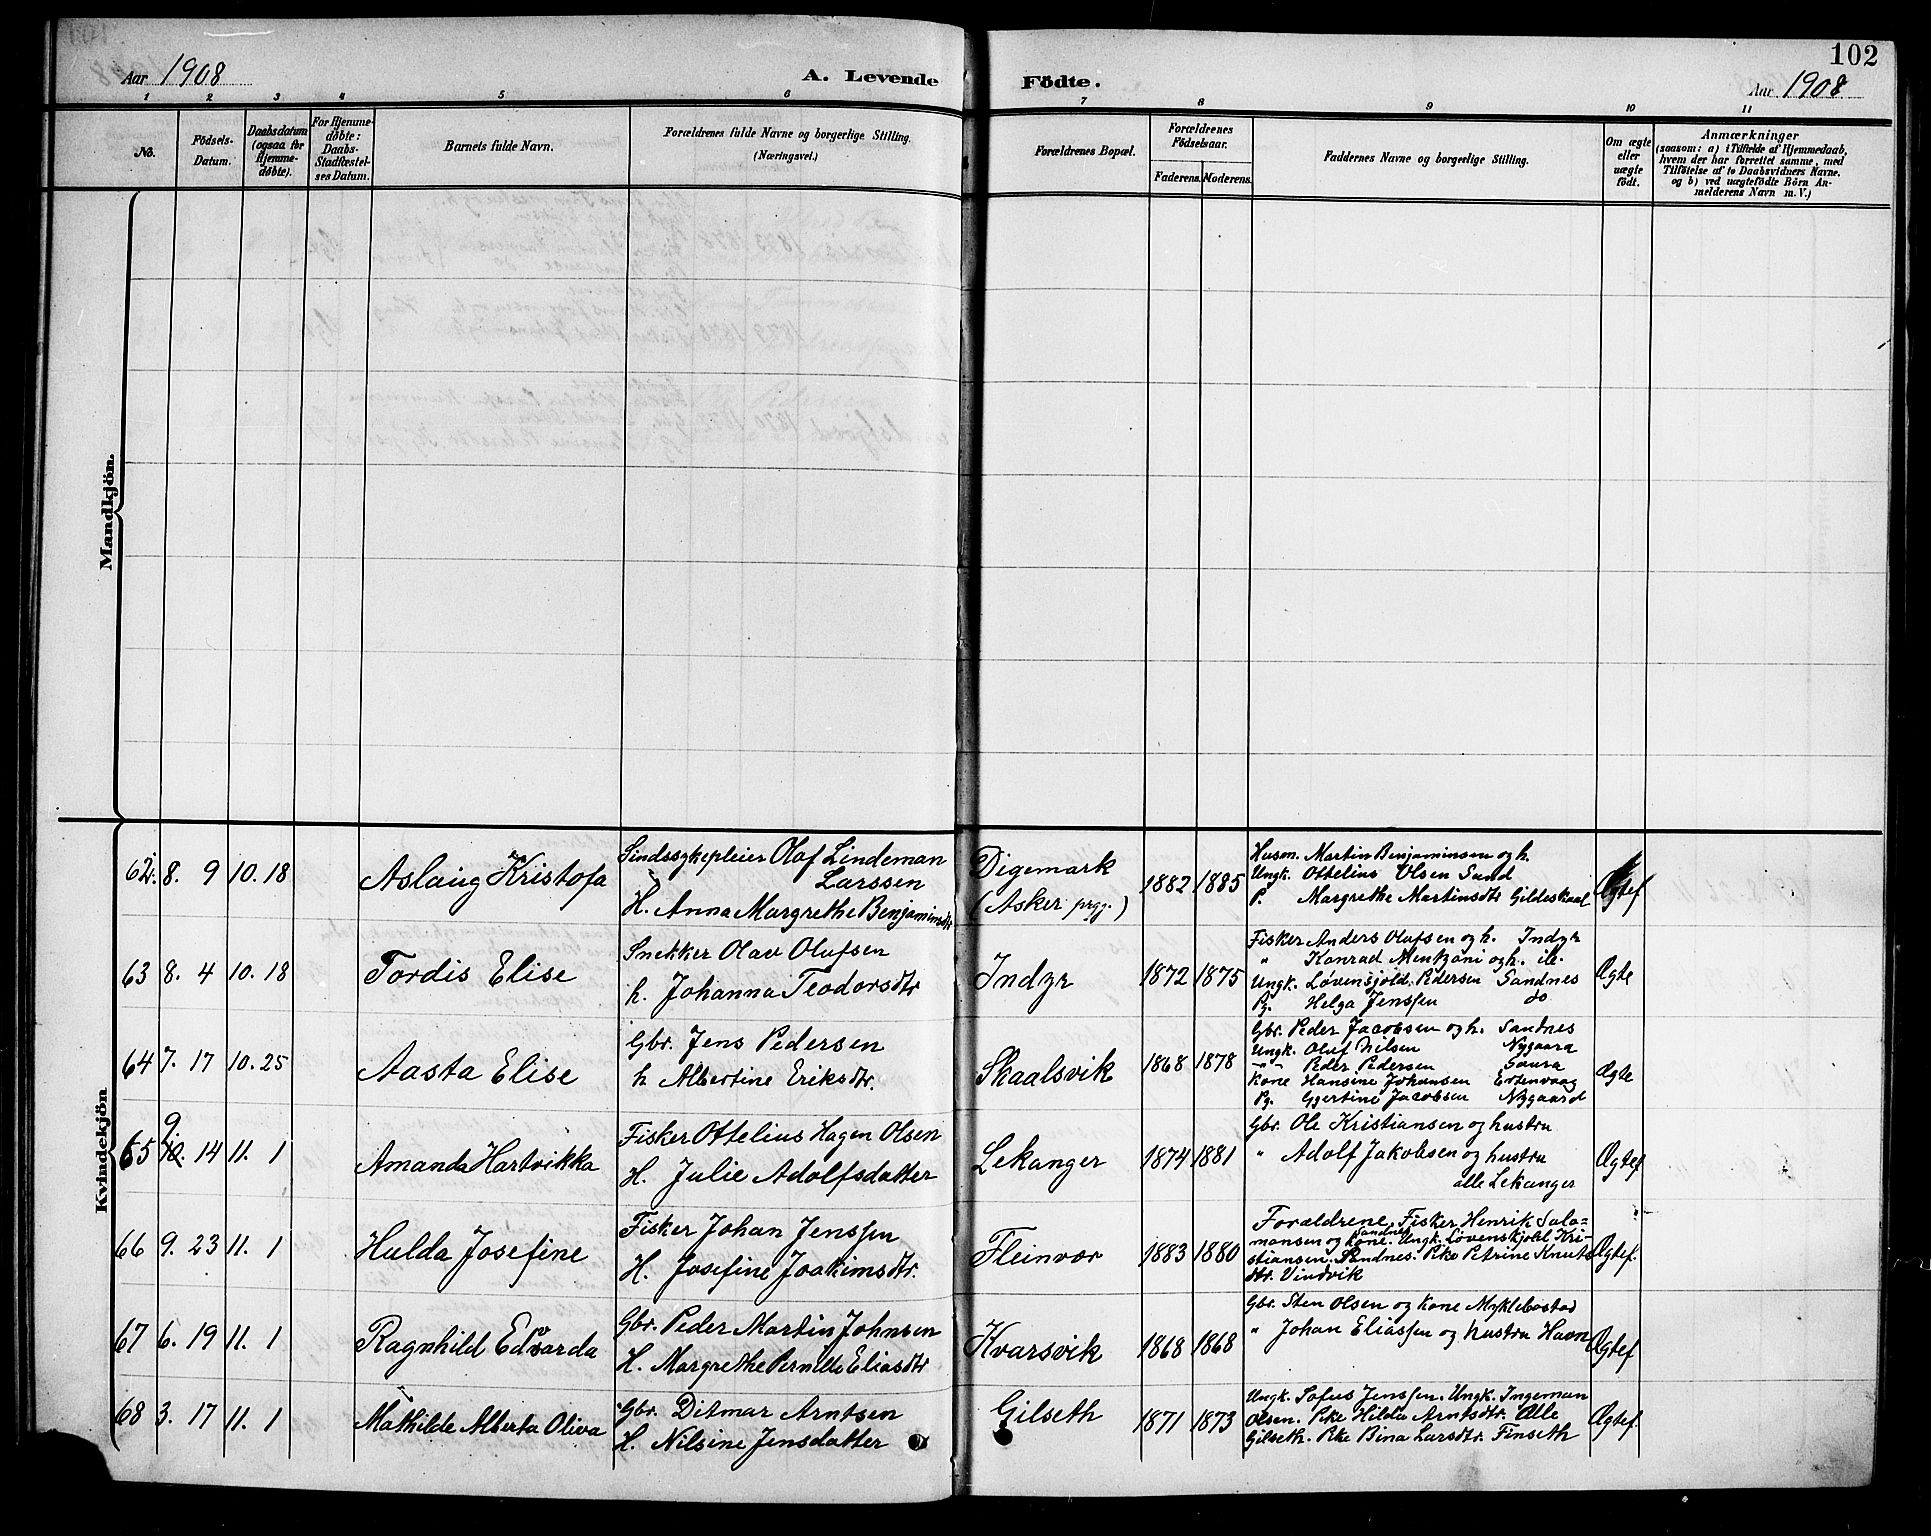 102
Aar 1908 A. Levende Födte. Aar 1908
1 2 3 4 5 6 7 8 9 10 11
No.
Födsels-Datum.
Daabsdatum (ogsaa for Hjemme-døbte).
For Hjemme-døbte: Daabs-Stadfæstel-ses Datum.
Barnets fulde Navn.
Forældrenes fulde Navne og borgerlige Stilling.
(Næringsvei.)
Forældrenes Bopæl.
Forældrenes Fødselsaar.
Faderens. Moderens.
Faddernes Navne og borgerlige Stilling.
Om ægte eller uægte født.
Anmærkninger
(saasom: a) i Tilfælde af Hjemmedaab,
hvem der har forrettet samme, med
Tilføielse af to Daabsvidners Navne.
og b) ved uægtefødte Börn An-
melderens Navn m. V.)
Mandkjön.
Kvindekjön
62. 8. 9 10. 18 Aslaug Kristofa
Sindssykepleier Olaf Lindeman
Larssen
H. Anna Margrethe Benjaminsdtr
Digemark
(Asker prgj.)
1882 1885
Husm. Martin Benjaminsen og h.
Ungk. Ottelius Olsen Sand
P. Margrethe Martinsdtr Gildeskaal
Ægtef
63 8. 4 10. 18 Tordis Elise
Snekker Olav Olufsen
h. Johanna Teodorsdtr
Indyr
1872 1875
Fisker Anders Olufsen og h. Indyr
" Konrad Mentzoni og h. ib.
Ungk. Løvenskjold Pedersen Sandnes
Pg. Helga Jenssen do
Ægte
64 7. 17 10. 25 Aasta Elise
Gbr. Jens Pedersen
h Albertine Eriksdtr.
Skaalsvik
1868 1878
Gbr. Peder Jacobsen og h. Sandnes
Ungk. Oluf Nilsen Nygaara
-"- Peder Pedersen Saura
Kone Hansine Johansen Ertenvaag
Pg. Gjertine Jacobsen Nygaard
Ægte
65 9 10. 14 11. 1 Amanda Hartvikka
Fisker Ottelius Hagen Olsen
H. Julie Adolfsdatter
Lekanger
1874 1881
Gbr. Ole Kristiansen og hustru
" Adolf Jakobsen og hustru
alle Lekanger
Ægtef
66 9. 23 11. 1 Hulda Josefine
Fisker Johan Jenssen
H. Josefine Joakimsdtr.
Fleinvær
1883 1880
Forældrene, Fisker Henrik Salo=
mansen og Kone. Sandnes Ungk. Løvenskjold Kri-
stiansen, Sandnes. Pke Petrine Knuts
dtr. Vindvik
Ægtef.
67 6. 19 11. 1 Ragnhild Edvarda
Gbr. Peder Martin Johnsen
H. Margrethe Pernille Eliasdtr
Kvarsvik
1868 1868
Gbr. Sten Olsen og Kone Myklebostad
" Johan Eliassen og hustru Havn
Ægtef
68 3. 17 11. 1 Mathilde Alberta Oliva
Gbr. Ditmar Arntsen
H. Nilsine Jensdatter
Gilseth
1871 1873
Ungk. Sofus Jenssen. Ungk. Ingeman
Olsen. Pke Hilda Arntsdtr. Alle
Gilseth. Pke Bina Larsdtr. Finseth
Ægtef.